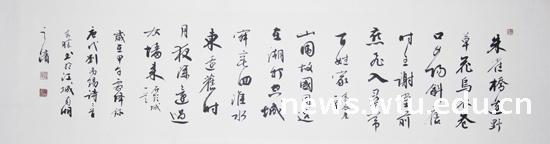 朱雀桥边野
草花乌衣巷
口夕阳斜旧
时王谢堂前
燕飞入寻常
百姓家
山围故国周遭
在潮打空城
寂寞回淮水
东边旧时
月夜深还过
女墙来 石头城
岁在甲午
唐代刘禹锡诗二首
www.wtu.edu.cn